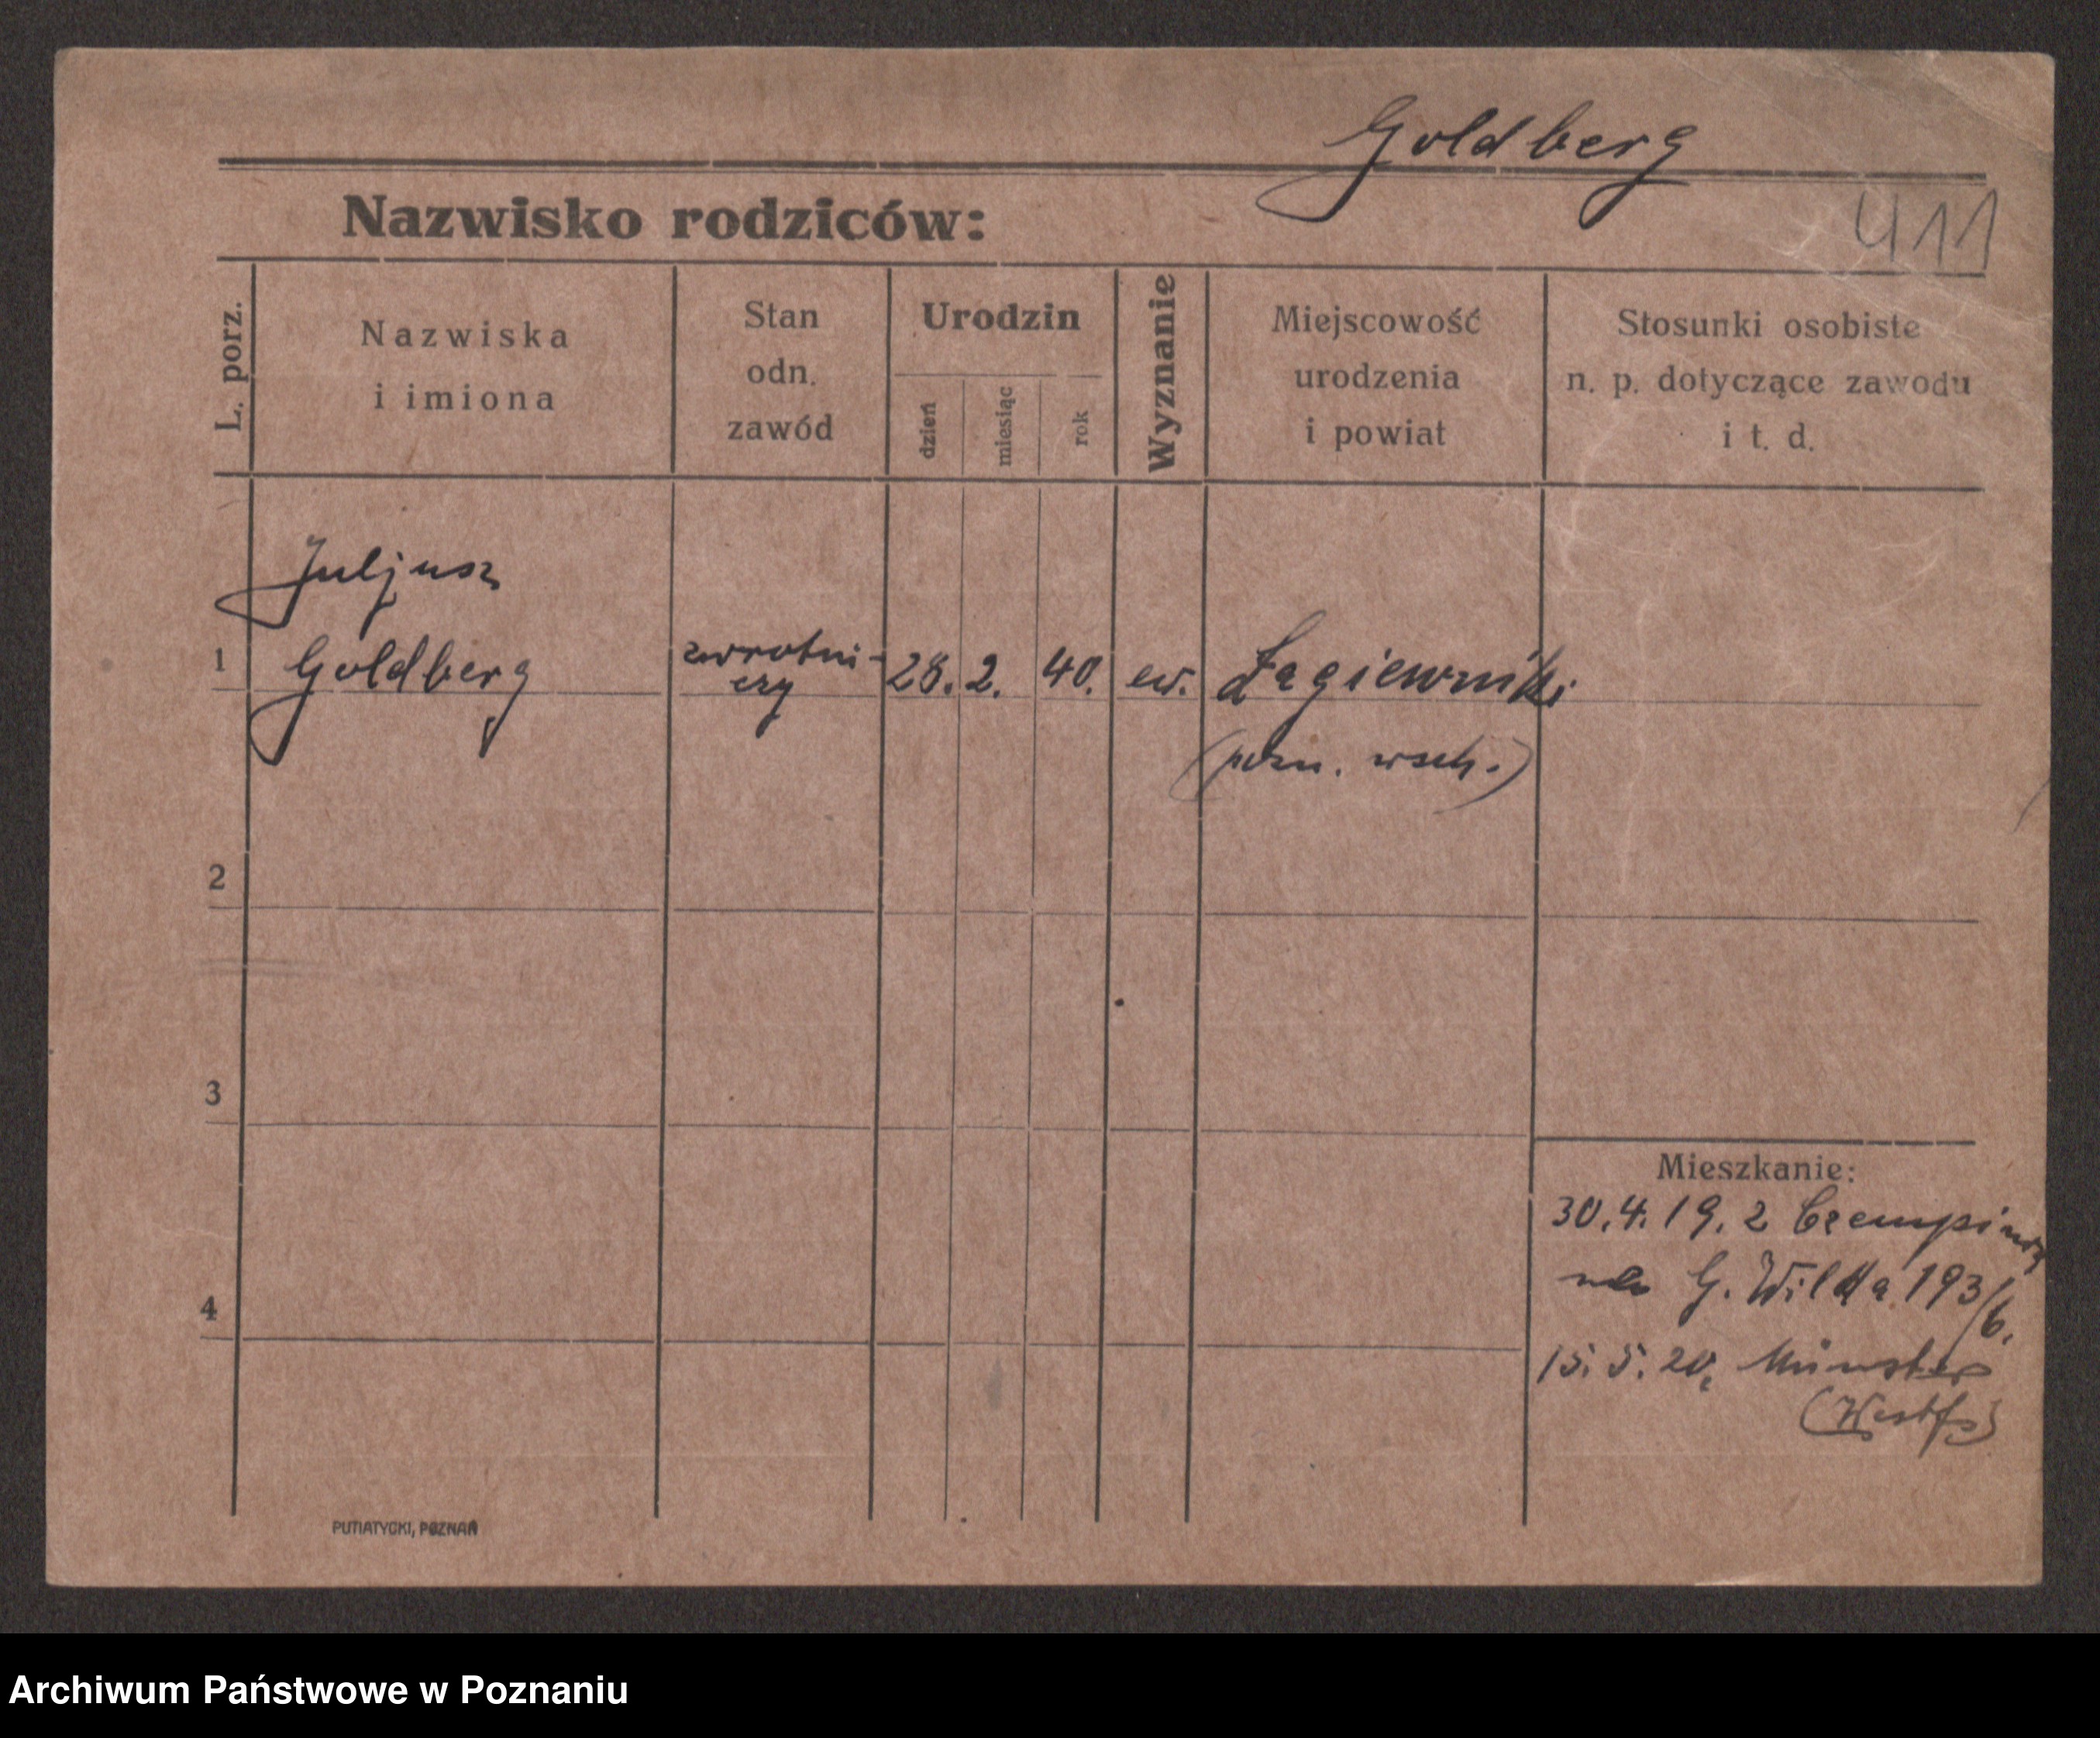 Goldberg
Nazwisko rodziców:
411
L. porz.
Nazwiska
i imiona
Stan
odn.
zawód
Urodzin
dzień
miesiąc
rok
Wyznanie
Miejscowość
urodzenia
i powiat
Stosunki osobiste
n. p. dotyczące zawodu
i t. d.
Juljusz
1 Goldberg zwrotni- 28. 2. 40. ew. Łagiewniki
czy
(pozn. wsch.)
2
3
4
Mieszkanie:
30.4.19. z
G. Wilda 193/6.
15.5.20. Münster
(Westf)
PUTIATYCKI, POZNAŃ
Archiwum Państwowe w Poznaniu